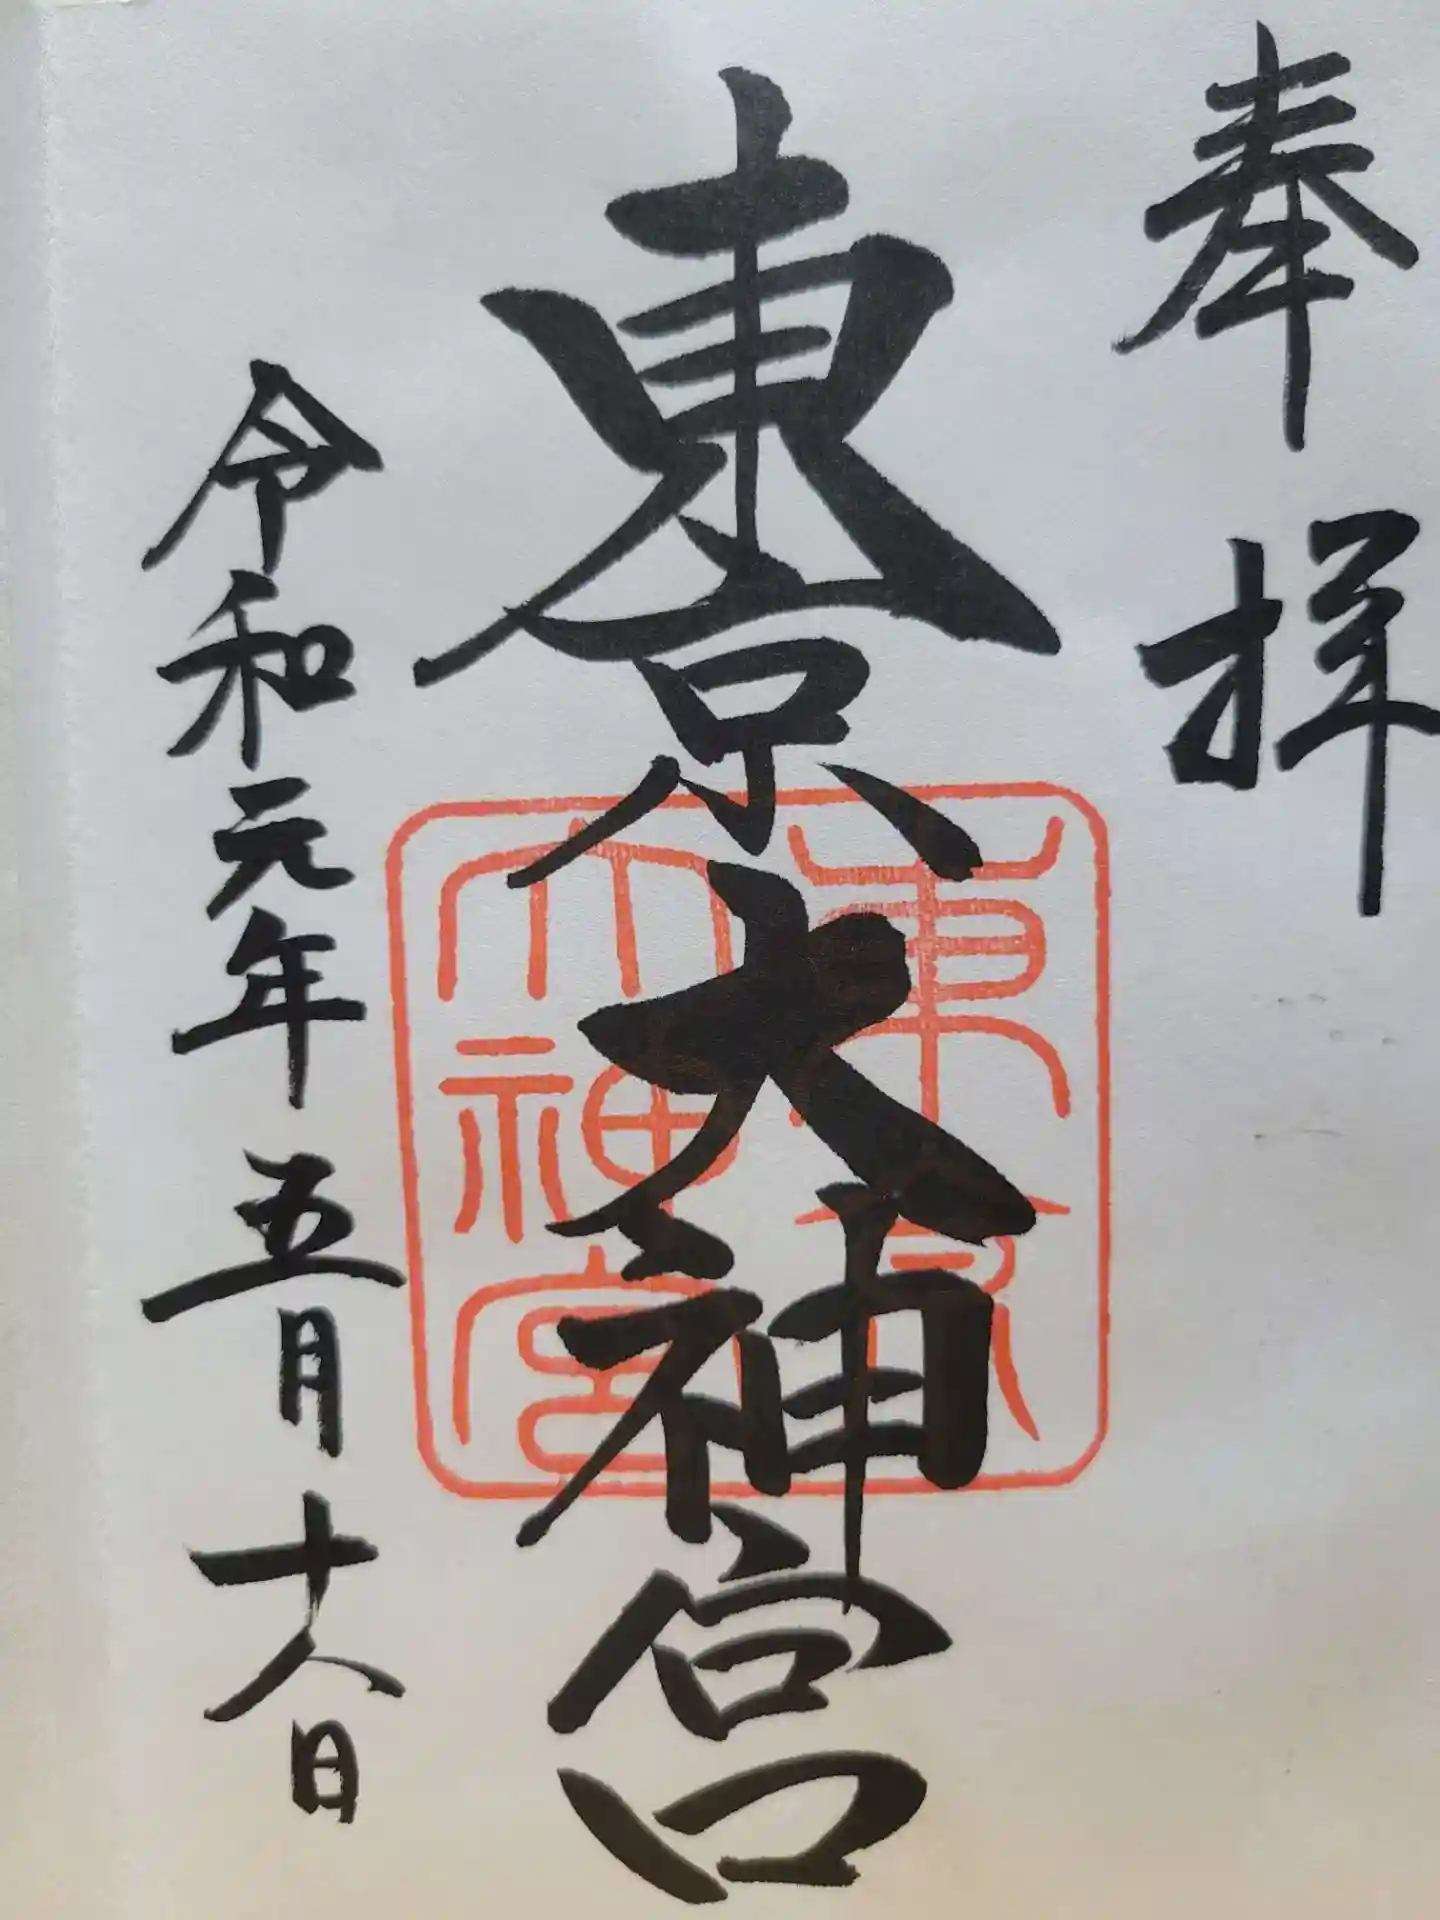 奉拝
東京大神宮
東京
大神宮
令和元年五月十八日